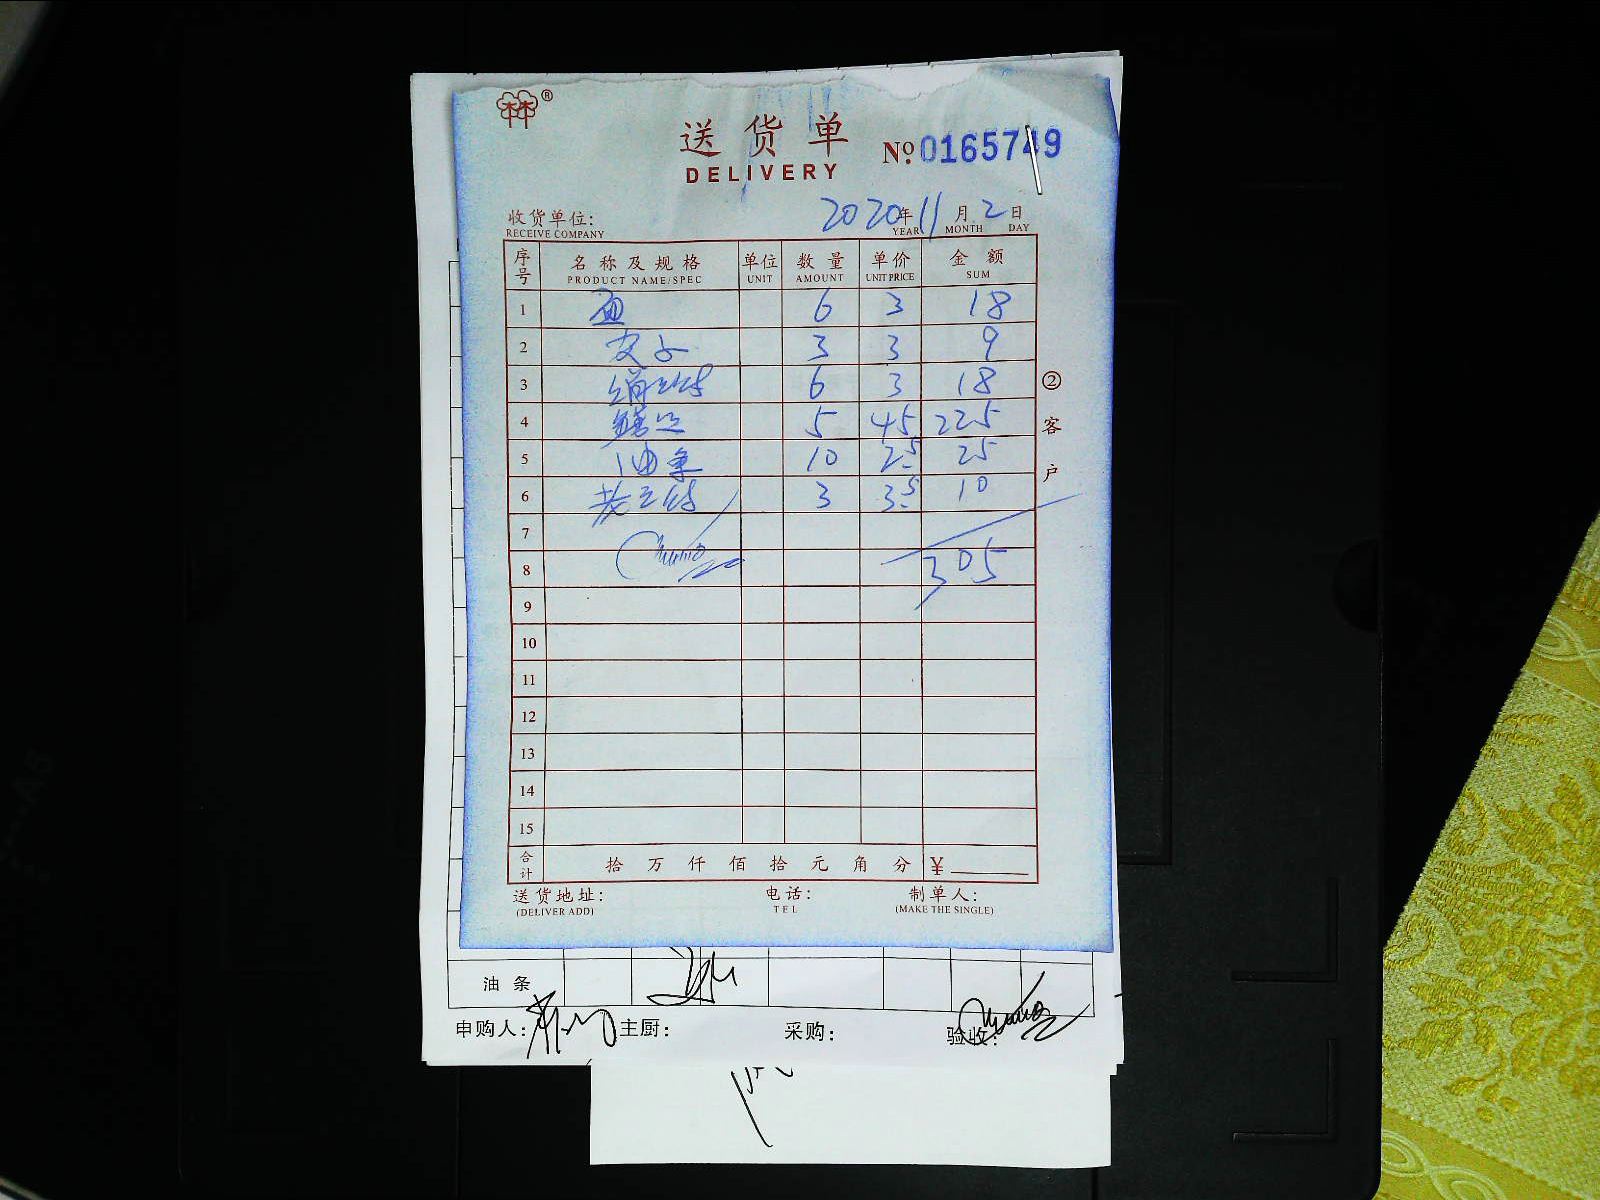 林®
送货单
DELIVERY
№ 0165749
收货单位: 2020年11月2日
RECEIVE COMPANY YEAR MONTH DAY
序号 名称及规格 单位 数量 单价 金额
PRODUCT NAME/SPEC UNIT AMOUNT UNIT PRICE SUM
1 面 6 3 18
2 皮子 3 3 9
3 6 3 18
4 5 45 225
5 油条 10 2.5 25
6 3 3.5 10
7
8 305
9
10
11
12
13
14
15
② 客户
合计 拾万仟佰拾元角分 ¥
送货地址: 电话: 制单人:
(DELIVER ADD) TEL (MAKE THE SINGLE)
油条
申购人: 主厨: 采购: 验收: